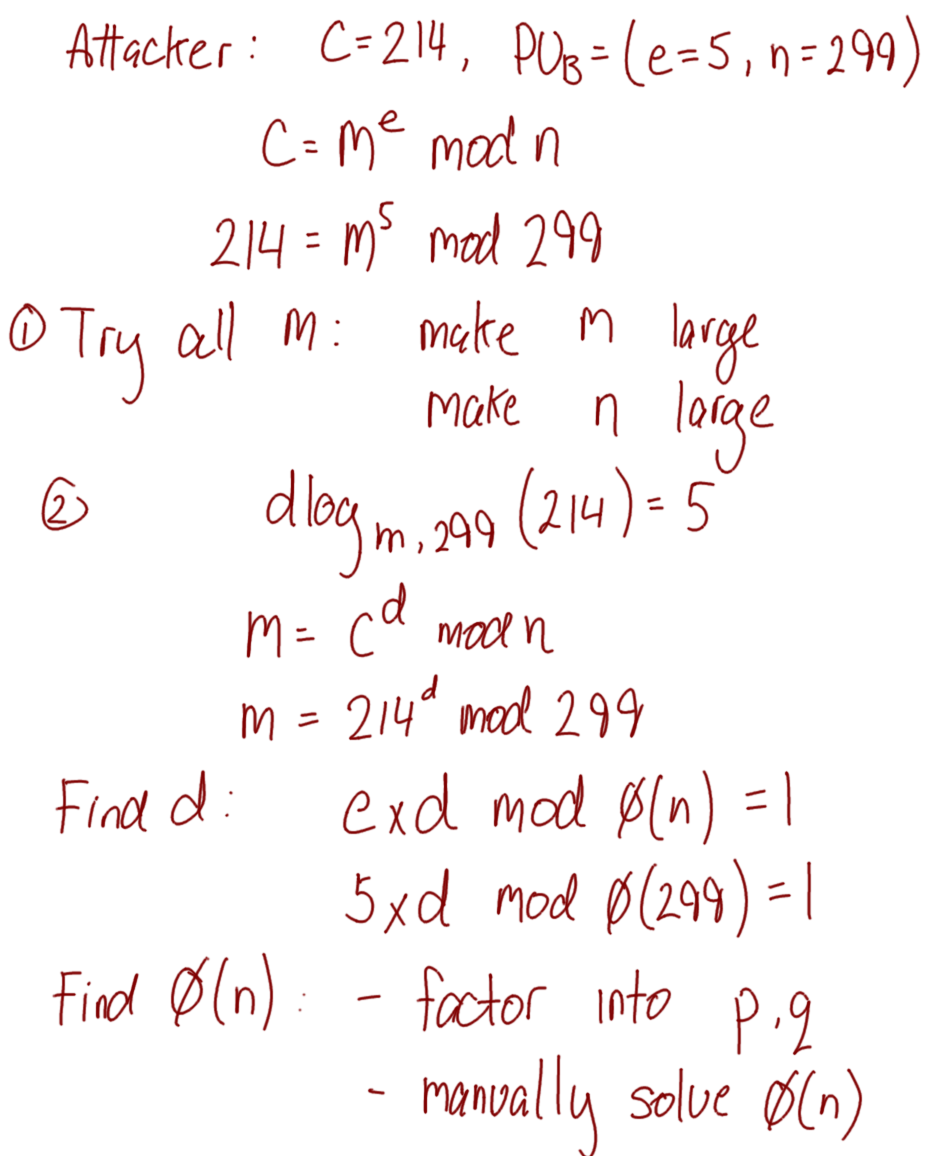 Attacker: C=214, PU_B=(e=5, n=299)
C=m^e mod n
214=m^5 mod 299
① Try all m: make m large
make n large
② dlog_m,299 (214)=5
m= c^d mod n
m = 214^d mod 299
Find d: exd mod Ø(n) =1
5xd mod Ø(299)=1
Find Ø(n): - factor into p,q
- manually solve Ø(n)